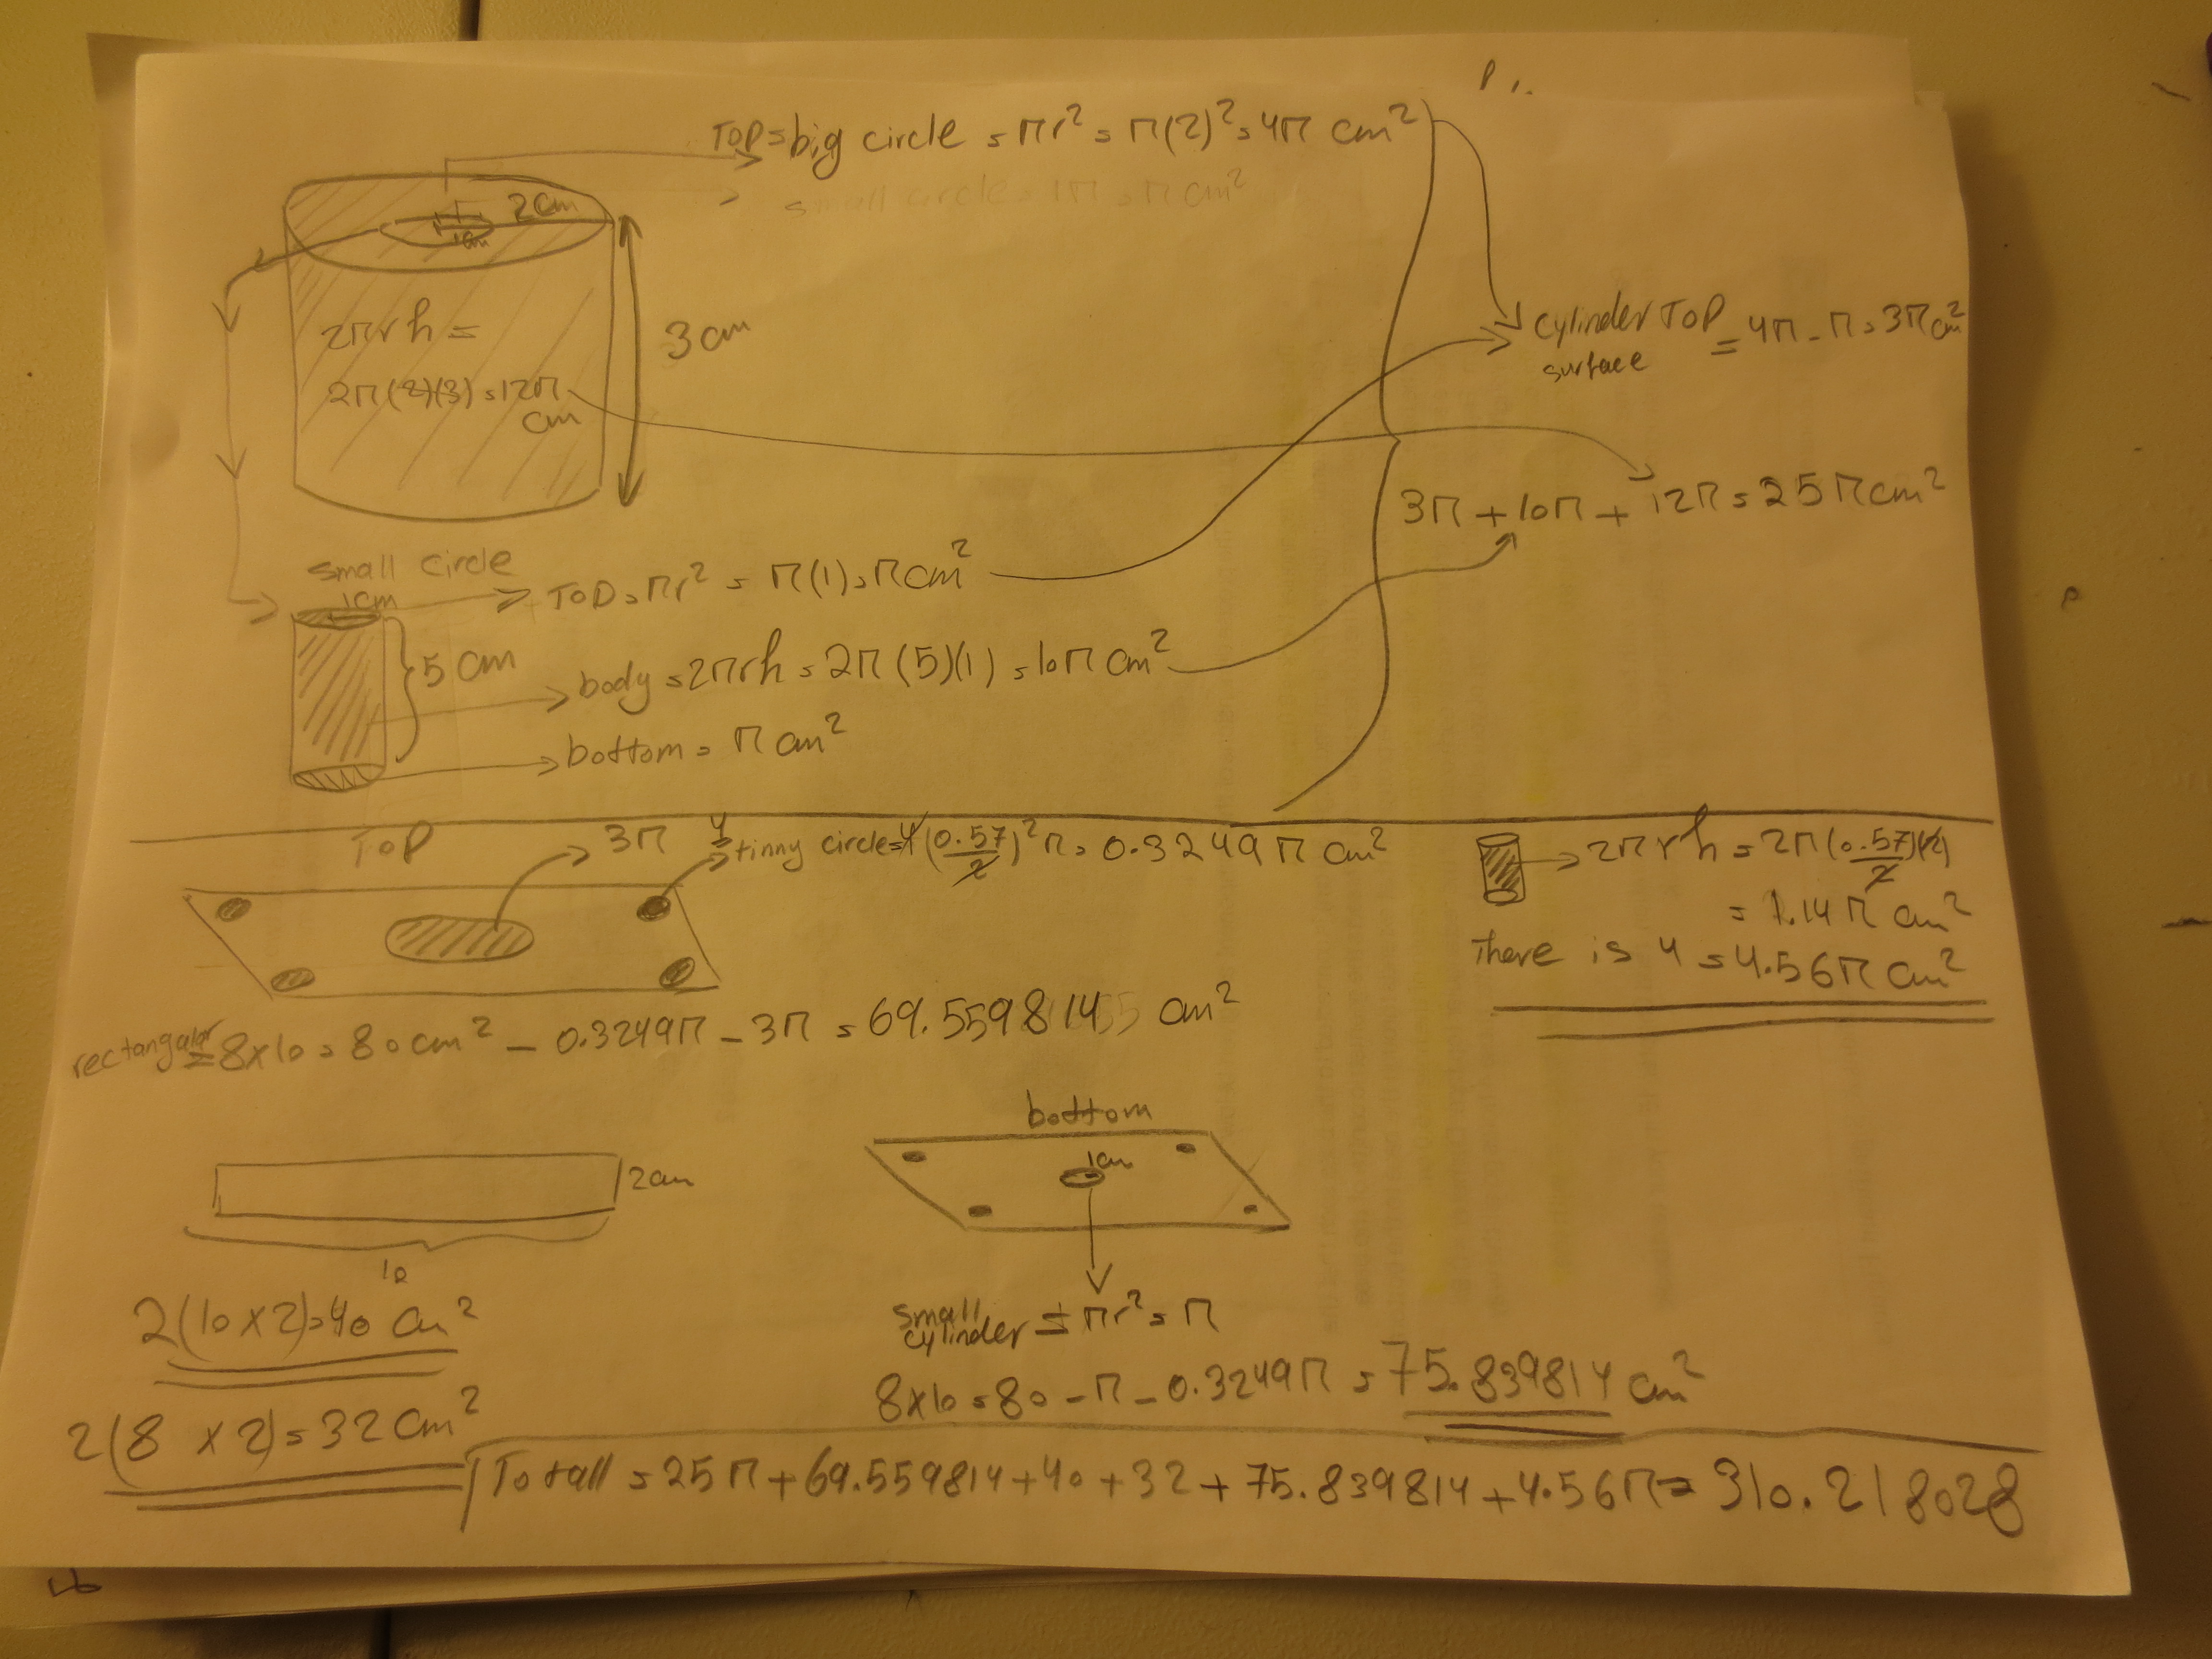 P1.
TOP = big circle = πr² = π(2)² = 4π cm²
small circle = 1π = π cm²
2cm
1cm
2πrh =
2π(2)(3) = 12π
cm
3 cm
cylinder TOP = 4π - π = 3π cm²
surface
3π + 10π + 12π = 25π cm²
small circle
1cm
TOP = πr² = π(1) = π cm²
5 cm
body = 2πrh = 2π(5)(1) = 10π cm²
bottom = π cm²
TOP
3π
4 tinny circle = 4(0.57/2)²π = 0.3249π cm²
2πrh = 2π(0.57/2)(2)
= 1.14π cm²
There is 4 = 4.56π cm²
rectangular = 8x10 = 80 cm² - 0.3249π - 3π = 69.559814 cm²
2cm
10
2(10 x 2) = 40 cm²
2(8 x 2) = 32 cm²
bottom
1cm
small cylinder = πr² = π
8x10 = 80 - π - 0.3249π = 75.839814 cm²
Totall = 25π + 69.559814 + 40 + 32 + 75.839814 + 4.56π = 310.218028